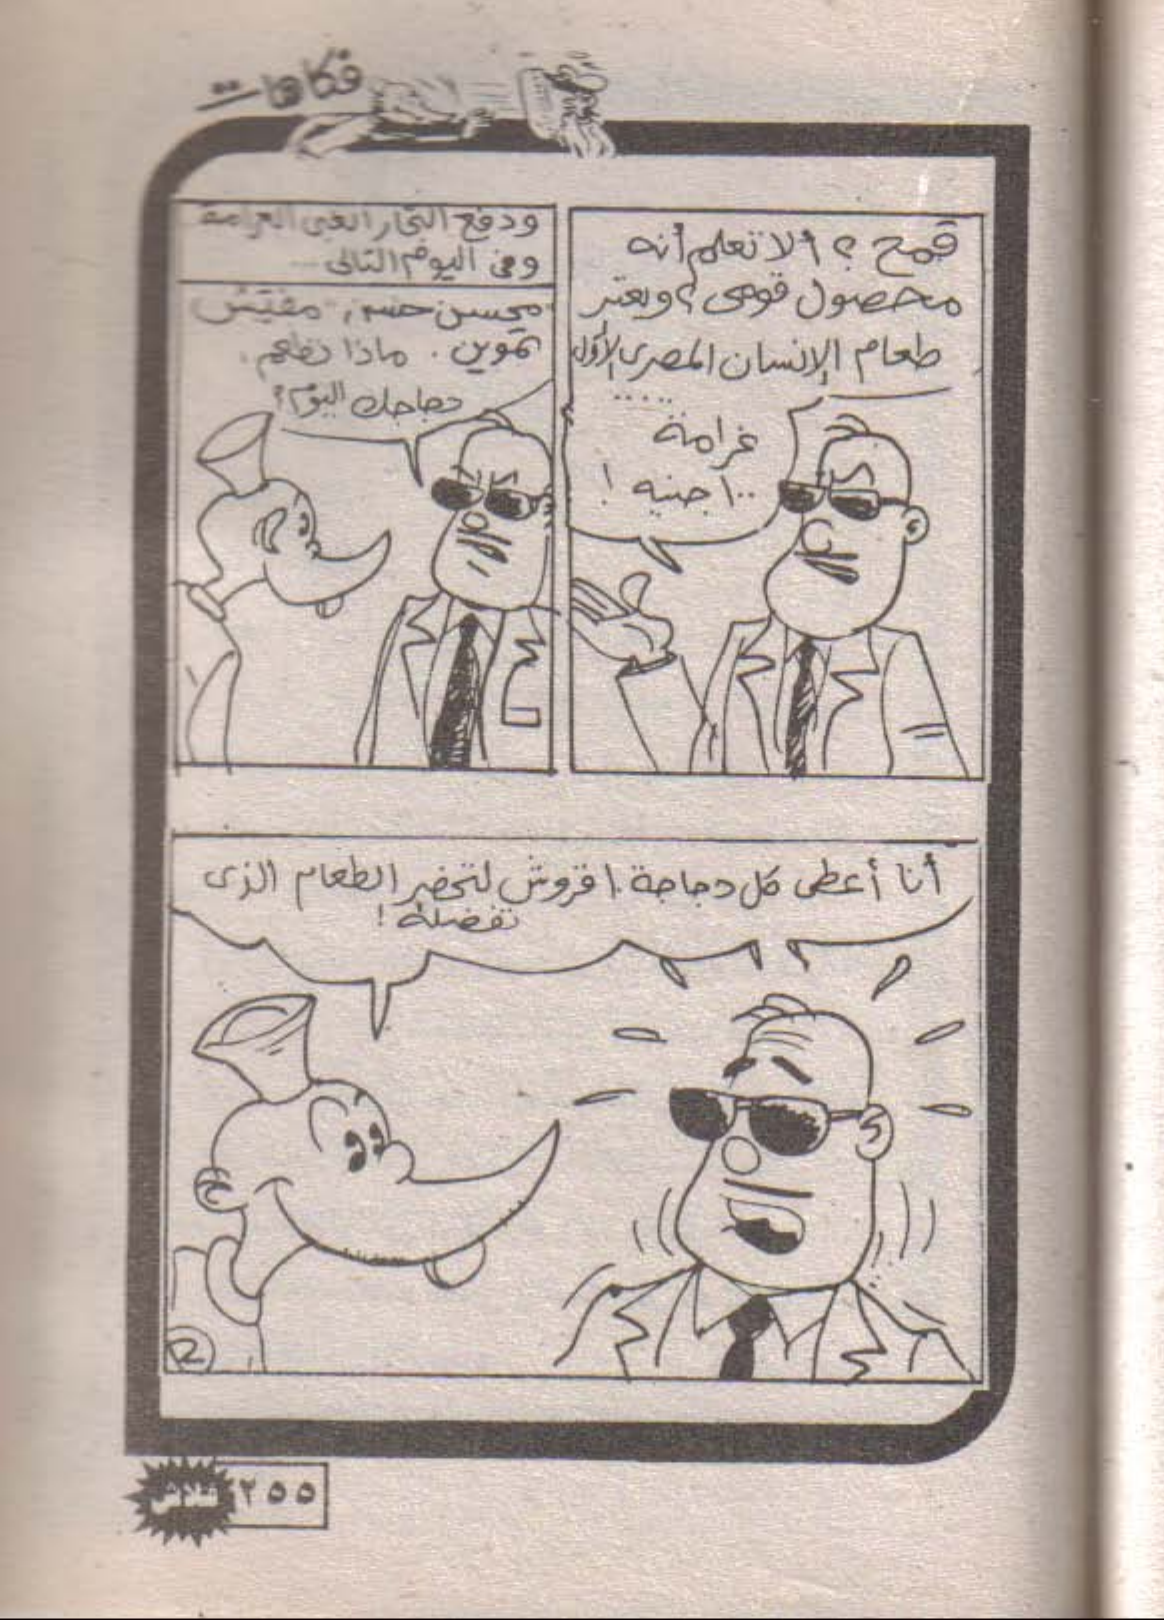 فكاهات
قمح ؟ ألا تعلم أنه
محصول قومى ؟ ويعتبر
طعام الإنسان المصرى الأول
.....
غرامة
١٠٠ جنيه !
ودفع التجار الغبى الغرامة
وفى اليوم التالى ...
محسن حسن، مفتش
تموين. ماذا تطعم
دجاجك اليوم ؟
أنا أعطى كل دجاجة ١٠ قروش لتحضر الطعام الذى
تفضله !
٢٥٥
فلاش